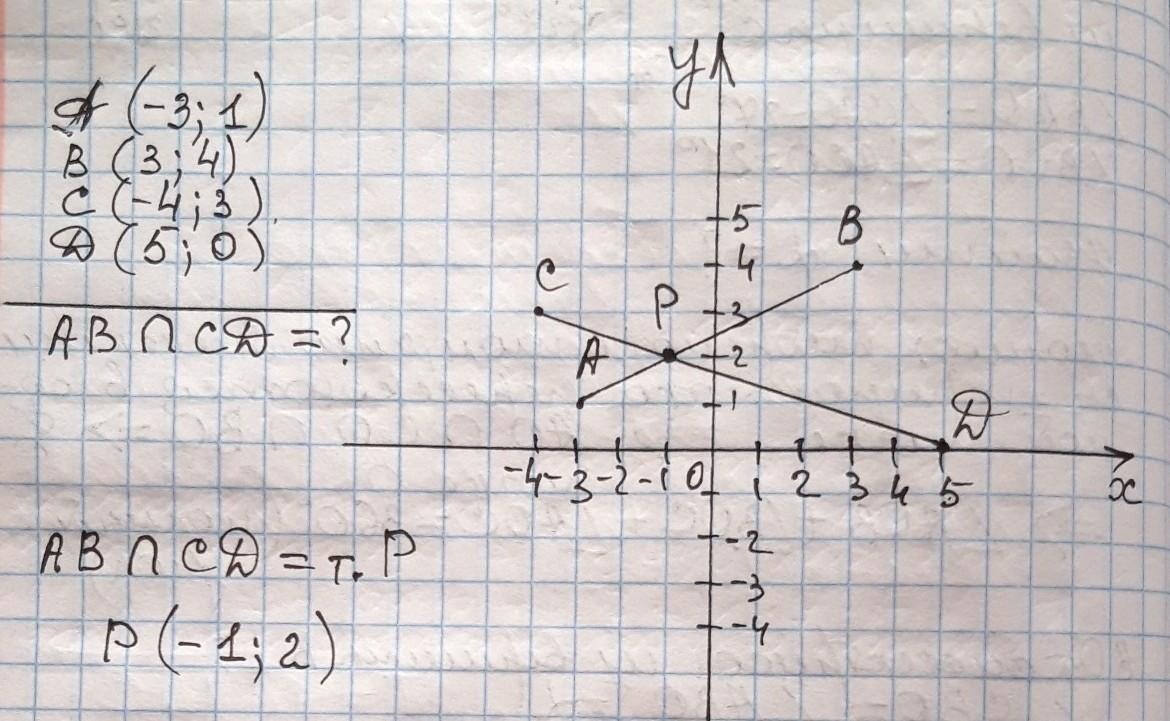 A (-3; 1)
B (3; 4)
C (-4; 3)
D (5; 0)
AB ∩ CD = ?
AB ∩ CD = т. P
P (-1; 2)
y
5
B
4
C
P
3
A
2
1
D
-4 -3 -2 -1 0 1 2 3 4 5 x
-2
-3
-4